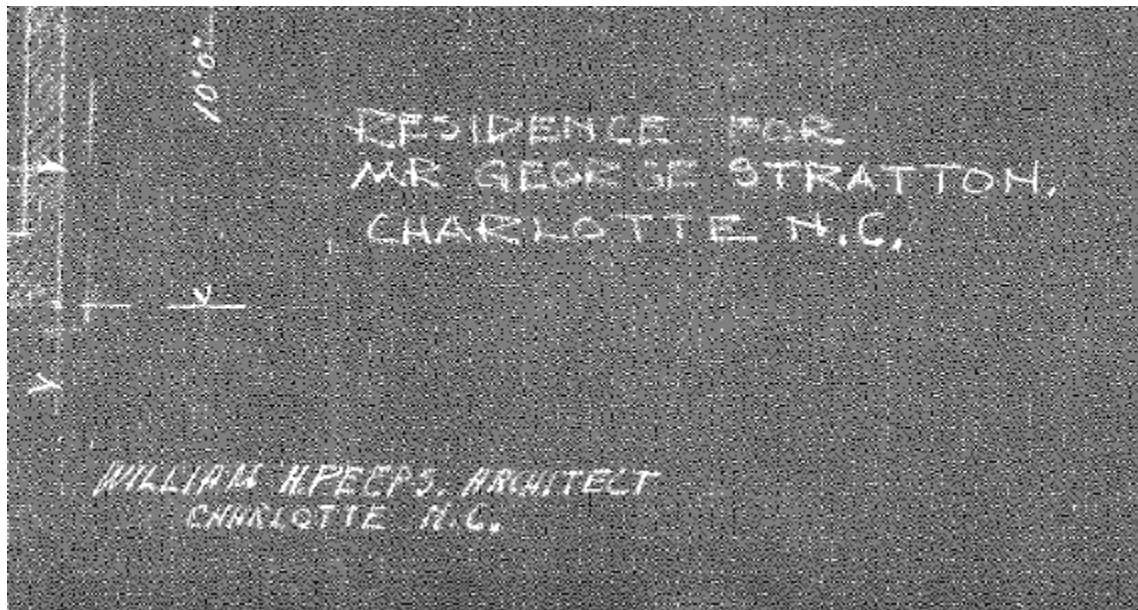 10'0"
RESIDENCE FOR
MR GEORGE STRATTON,
CHARLOTTE N.C.
WILLIAM H.PEEPS. ARCHITECT
CHARLOTTE N.C.